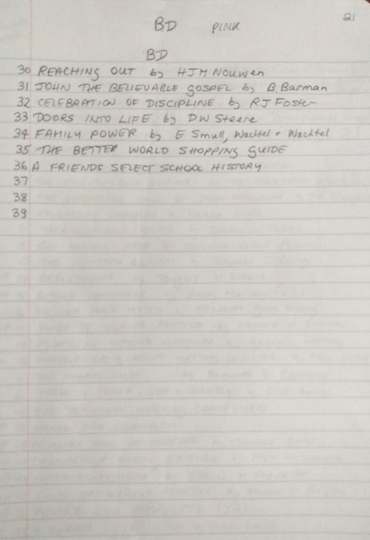 21
BD PINK
BD
30 REACHING OUT by HJM Nouwen
31 JOHN THE BELIEVABLE GOSPEL by B. Barman
32 CELEBRATION OF DISCIPLINE by RJ Foster
33 DOORS INTO LIFE by DW Steere
34 FAMILY POWER by E Small, Wachtel + Wachtel
35 THE BETTER WORLD SHOPPING GUIDE
36 A FRIENDS SELECT SCHOOL HISTORY
37
38
39